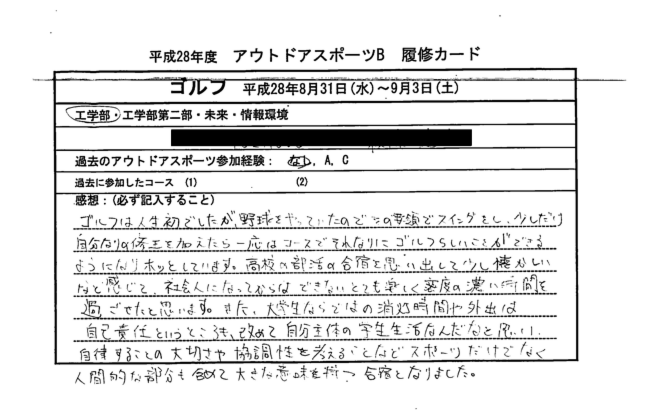 平成28年度 アウトドアスポーツB 履修カード
ゴルフ 平成28年8月31日(水)～9月3日(土)
工学部・工学部第二部・未来・情報環境
過去のアウトドアスポーツ参加経験： なし, A, C
過去に参加したコース (1) (2)
感想：(必ず記入すること)
ゴルフは人生初でしたが、野球をやっていたのでその要領でスイングをし、少しだけ
自分なりの修正を加えたら一応はコースでそれなりにゴルフらしいことができる
ようになりホッとしています。高校の部活の合宿を思い出して少し懐かしい
なと感じて、社会人になってからはできないとても楽しく密度の濃い時間を
過ごせたと思います。また、大学生ならではの消灯時間や外出は
自己責任というところも、改めて自分主体の学生生活なんだなと思い、
自律することの大切さや協調性を考えることなどスポーツだけでなく
人間的な部分も含めて大きな意味を持つ合宿となりました。